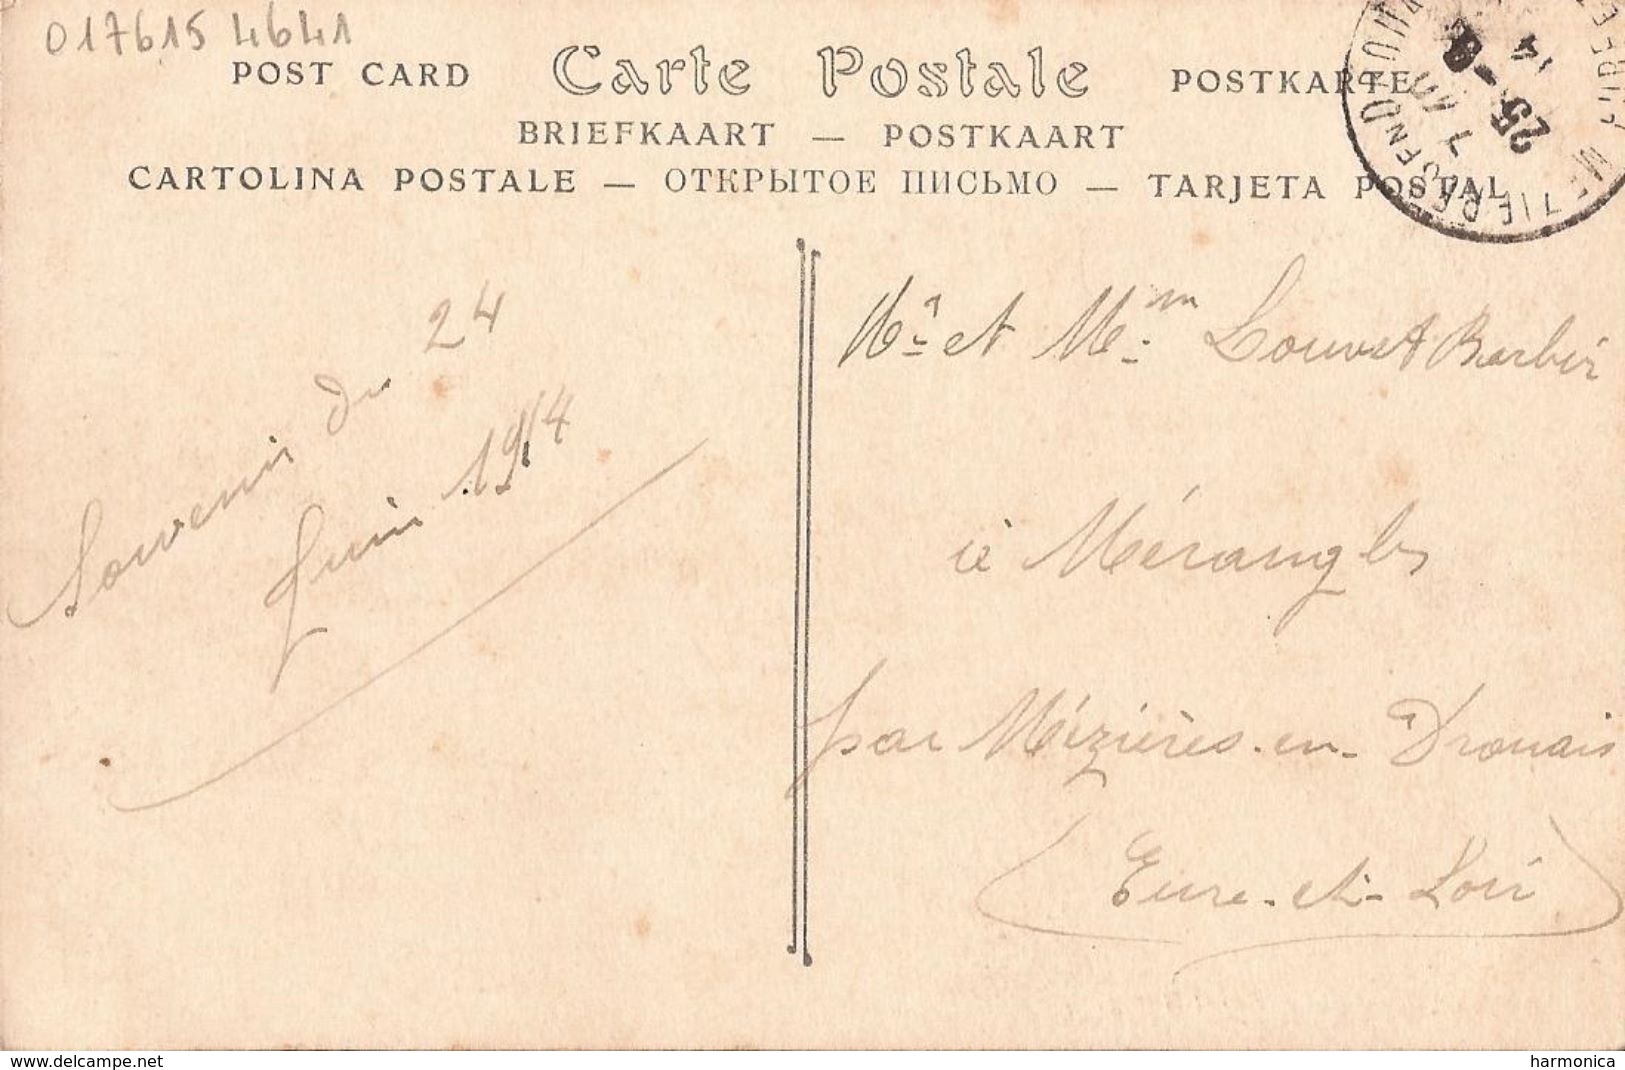 017615 4641
POST CARD Carte Postale POSTKARTE
BRIEFKAART — POSTKAART
CARTOLINA POSTALE — ОТКРЫТОЕ ПИСЬМО — TARJETA POSTAL
25 - 6
14
Souvenir du 24
Juin 1914
Mr et Mm Louvet Barbier
à
par Mézières-en-Drouais
(Eure-et-Loir)
www.delcampe.net
harmonica